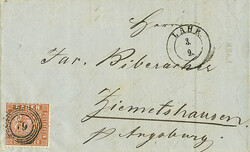 Herrn
LAHR.
3.
9.
Jac. Biberacher
BADEN.
79
Ziemetshausen
p. Augsburg.